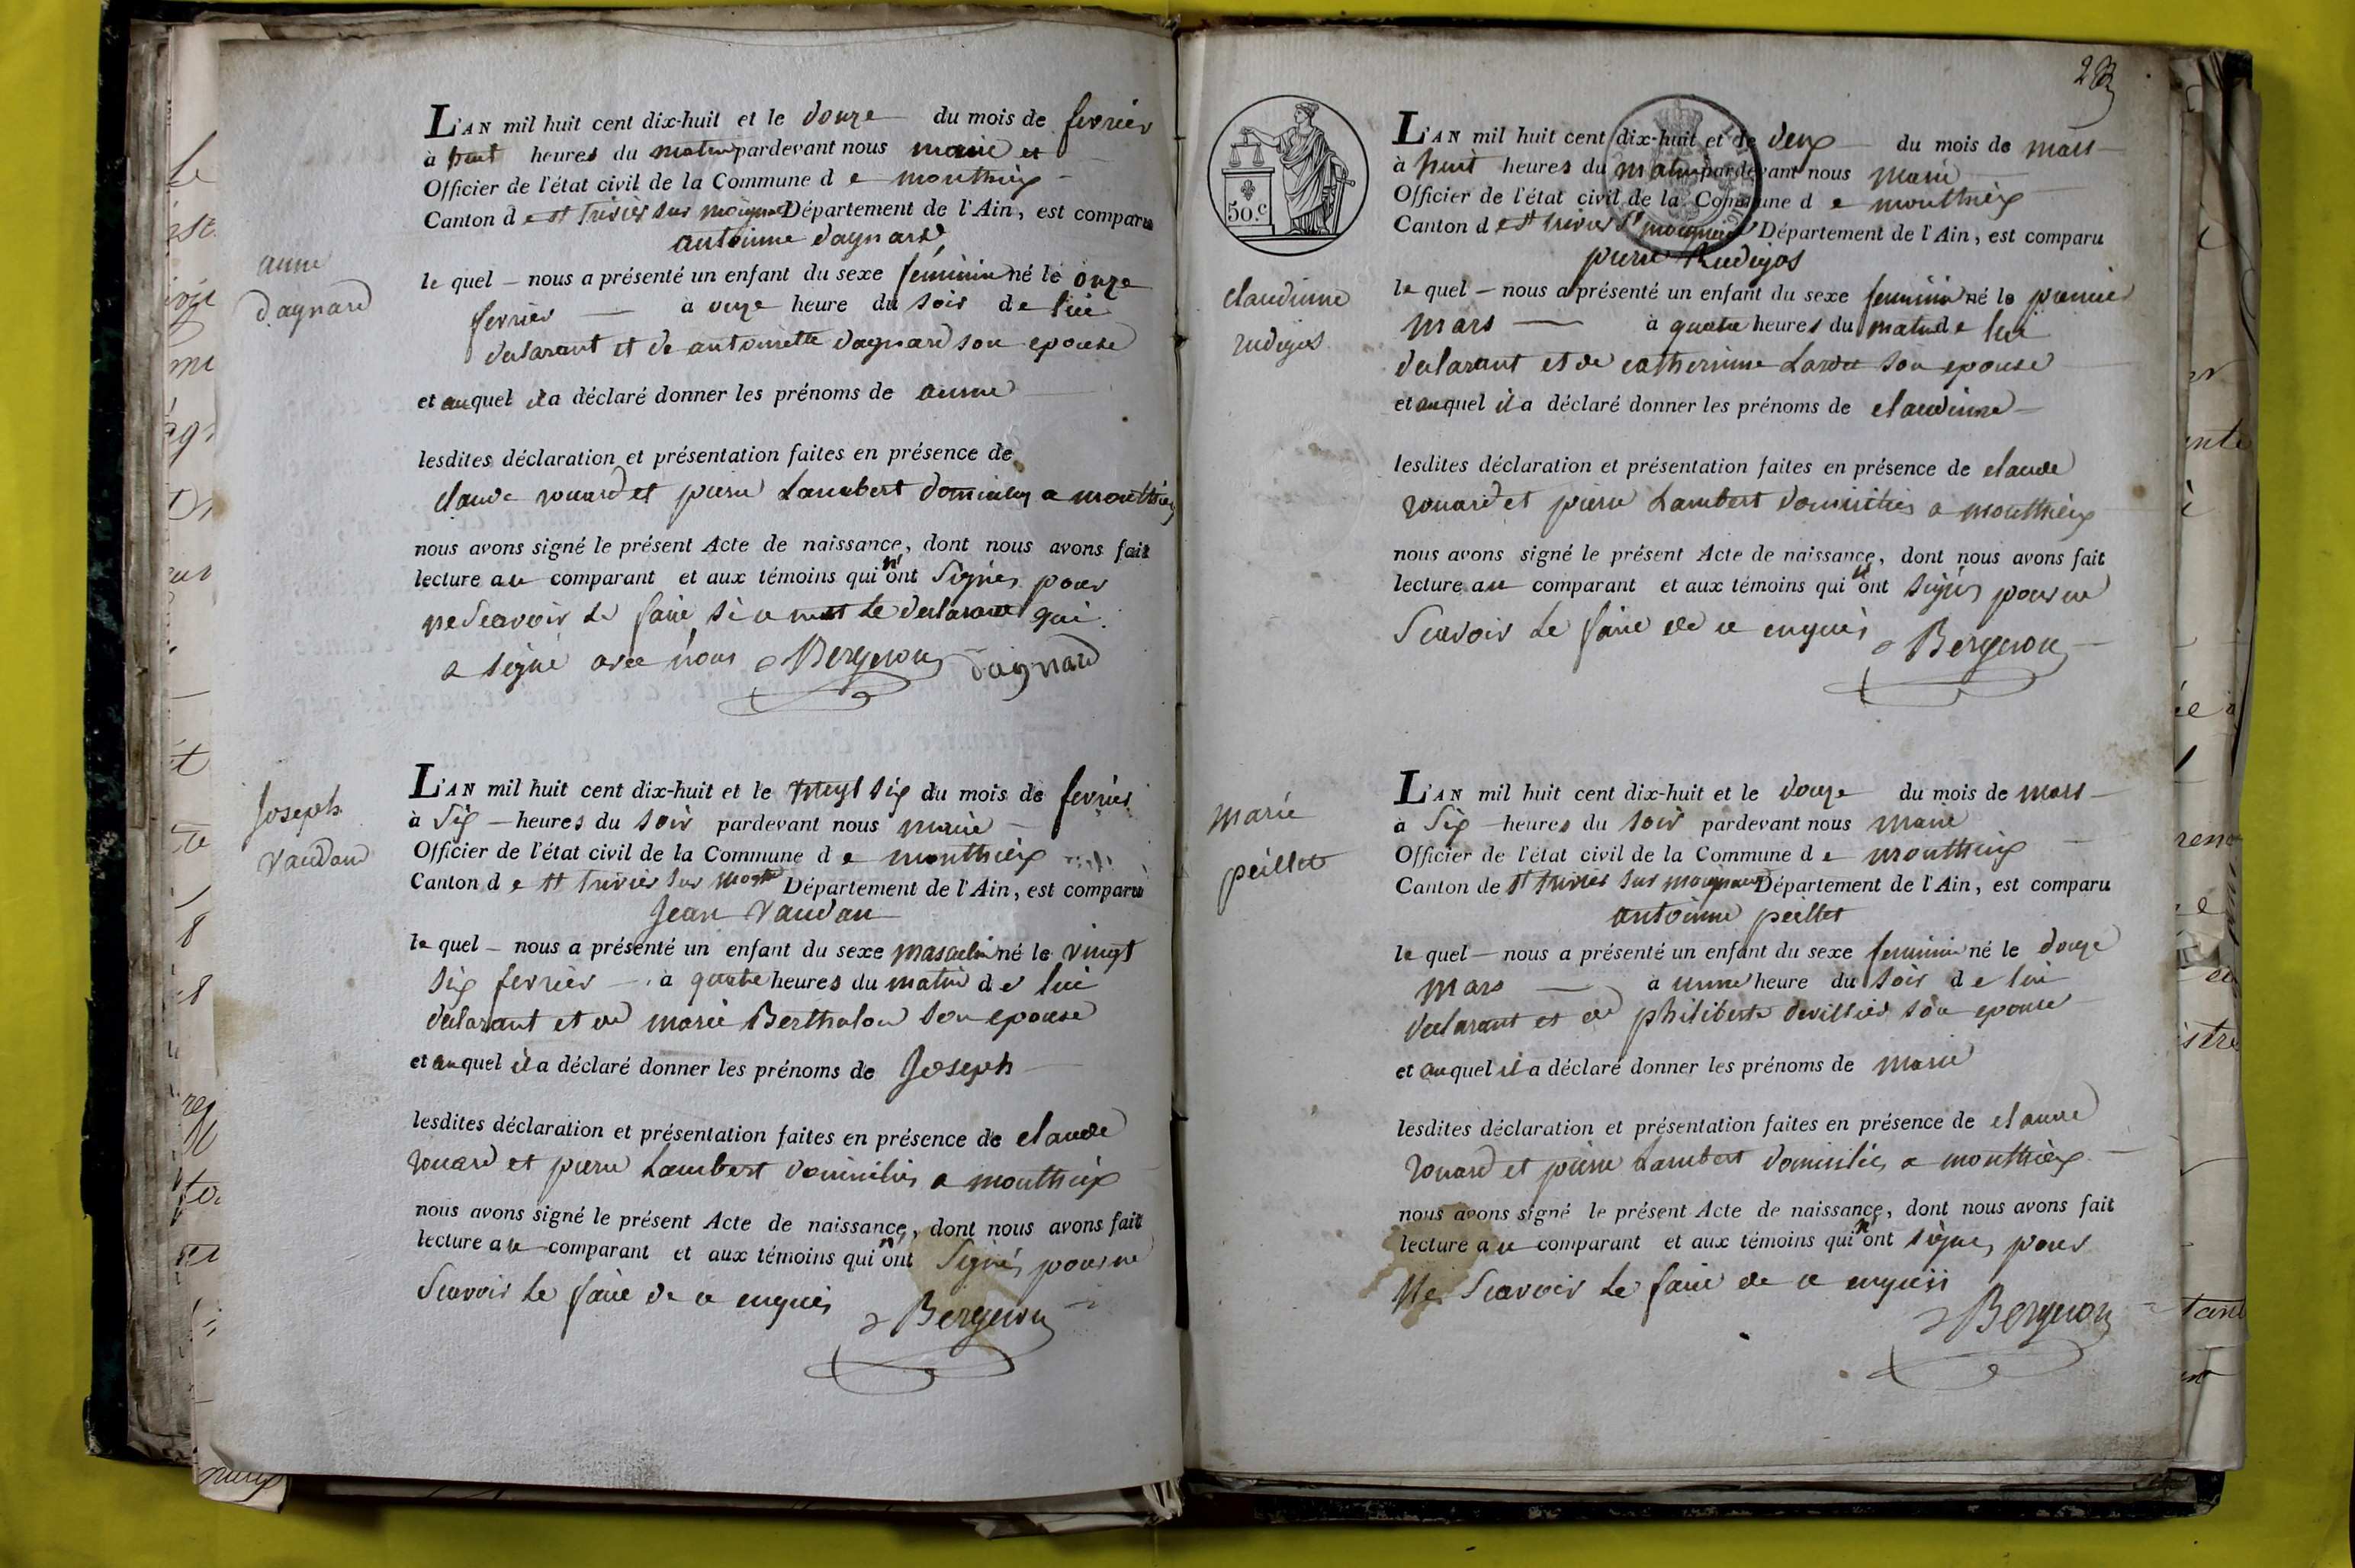 anne
dagnard
L'AN mil huit cent dix-huit et le douze du mois de fevrier
à huit heures du matin pardevant nous maire et
Officier de l'état civil de la Commune de monthieux
Canton de st trivier sur moignans Département de l'Ain, est comparu
antoinne dagnard
le quel nous a présenté un enfant du sexe feminin né le onze
fevrier à onze heure du soir de lui
declarant et de antoinette dagnard son epouse
et auquel il a déclaré donner les prénoms de anne
lesdites déclaration et présentation faites en présence de
claude rouard et pierre Lambert domicilies a monthieux
nous avons signé le présent Acte de naissance, dont nous avons fait
lecture au comparant et aux témoins qui n'ont Signés pour
ne Scavoir Le faire, si ce nest Le declarant qui
a signé avec nous Bergeron dagnard
Joseph
Vaudand
L'AN mil huit cent dix-huit et le vingt six du mois de fevrier
à Six heures du soir pardevant nous maire
Officier de l'état civil de la Commune de monthieux
Canton de st trivier sur Département de l'Ain, est comparu
Jean Vaudan
le quel nous a présenté un enfant du sexe masculin né le vingt
six fevrier à quatre heures du matin de lui
declarant et de marie Berthalon son epouse
et auquel il a déclaré donner les prénoms de Joseph
lesdites déclaration et présentation faites en présence de claude
rouard et pierre Lambert domicilies a monthieux
nous avons signé le présent Acte de naissance, dont nous avons fait
lecture au comparant et aux témoins qui n'ont Signés pour ne
Scavoir Le faire de ce enquis Bergeron
50.c
claudinne
rudigos
L'AN mil huit cent dix-huit et le deux du mois de mars
à huit heures du matin pardevant nous maire
Officier de l'état civil de la Commune de monthieux
Canton de st trivier sr moignans Département de l'Ain, est comparu
pierre Rudigos
le quel nous a présenté un enfant du sexe feminin né le premier
mars à quatre heures du matin de lui
declarant et de catherinne Lardu son epouse
et auquel il a déclaré donner les prénoms de claudinne
lesdites déclaration et présentation faites en présence de claude
rouard et pierre Lambert domicilies a monthieux
nous avons signé le présent Acte de naissance, dont nous avons fait
lecture au comparant et aux témoins qui n'ont signés pour ne
Scavoir Le faire de ce enquis Bergeron
marie
peillet
L'AN mil huit cent dix-huit et le douze du mois de mars
à Six heures du soir pardevant nous maire
Officier de l'état civil de la Commune de monthieux
Canton de st trivier sur moignans Département de l'Ain, est comparu
antoinne peillet
le quel nous a présenté un enfant du sexe feminin né le douze
mars à unne heure du soir de lui
declarant et de philiberte devillier son epouse
et auquel il a déclaré donner les prénoms de marie
lesdites déclaration et présentation faites en présence de claude
rouard et pierre Lambert domicilies a monthieux
nous avons signé le présent Acte de naissance, dont nous avons fait
lecture au comparant et aux témoins qui n'ont signés pour
Ne Scavoir Le faire de ce enquis
Bergeron